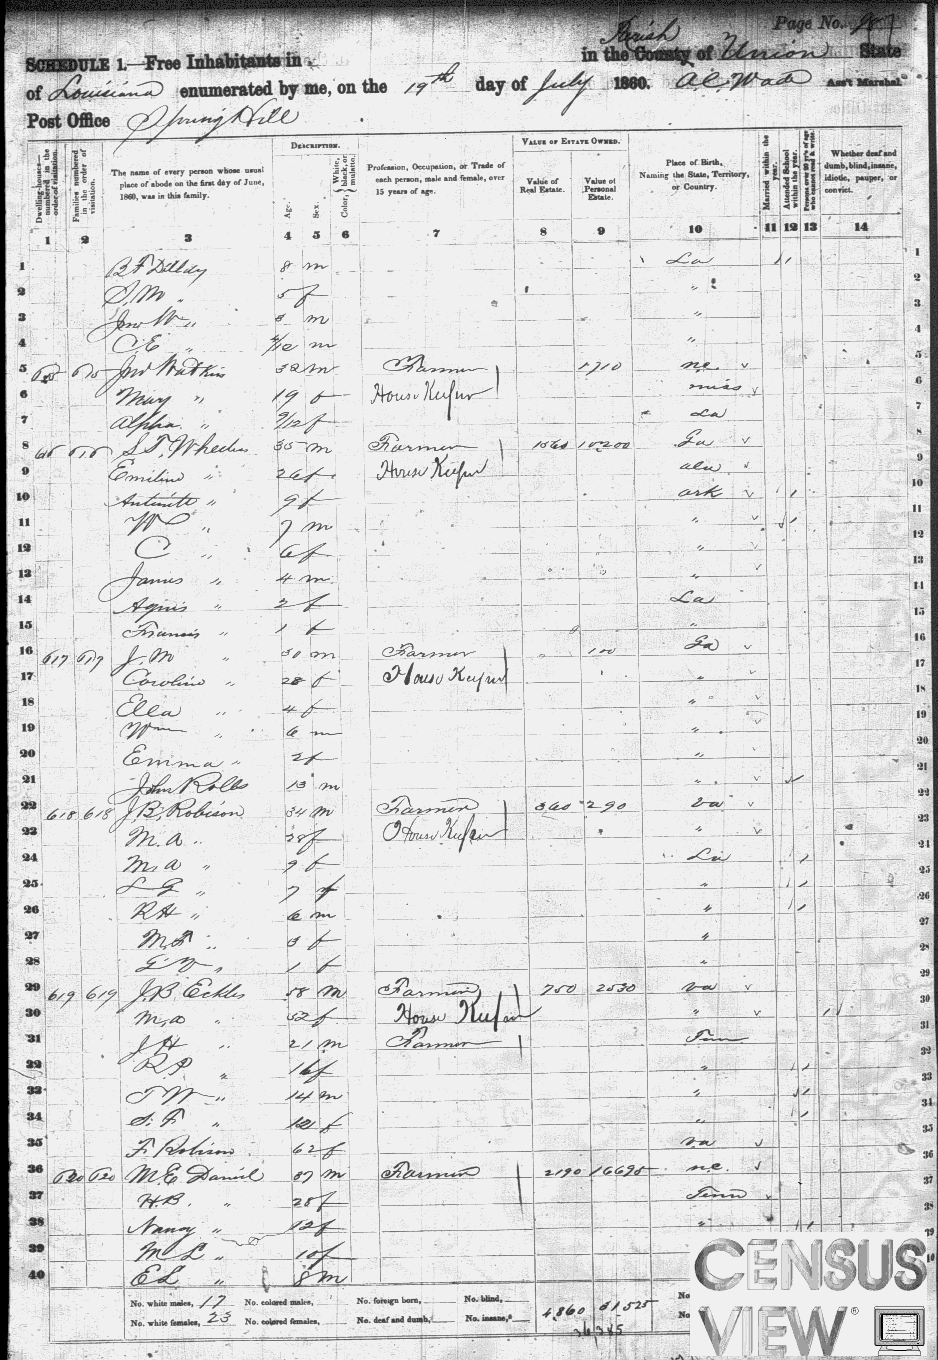 Page No.
SCHEDULE 1.—Free Inhabitants in Parish in the County of Union State
of Louisiana enumerated by me, on the 19th day of July 1860. A C Wade Ass't Marshal.
Post Office Spring Hill
Dwelling-houses—numbered in the order of visitation.
Families numbered in the order of visitation.
The name of every person whose usual place of abode on the first day of June, 1860, was in this family.
DESCRIPTION.
Age.
Sex.
Color, White, black, or mulatto.
Profession, Occupation, or Trade of each person, male and female, over 15 years of age.
VALUE OF ESTATE OWNED.
Value of Real Estate.
Value of Personal Estate.
Place of Birth, Naming the State, Territory, or Country.
Married within the year.
Attended School within the year.
Persons over 20 y'rs of age who cannot read & write.
Whether deaf and dumb, blind, insane, idiotic, pauper, or convict.
1 2 3 4 5 6 7 8 9 10 11 12 13 14
1 B F 8 m La 1
2 S. M " 5 f " 2
3 Jno W " 3 m " 3
4 C E " /12 m " 4
5 615 615 Jno Watkins 32 m Farmer 1710 nc 5
6 Mary " 19 f House Keeper miss 6
7 Alpha " 9/12 f La 7
8 616 616 S T. Wheeler 35 m Farmer 10200 Ga 8
9 Emiline " 26 f House Keeper ala 9
10 Antinett " 9 f ark 10
11 W " 7 m " 11
12 C " 6 f " 12
13 James " 4 m " 13
14 Agnis " 2 f La 14
15 Francis " 1 f " 15
16 617 617 J. M " 30 m Farmer 100 Ga 16
17 Caroline " 28 f House Keeper " 17
18 Ella " 4 f " 18
19 Wm " 6 m " 19
20 Emma " 2 f " 20
21 John Robbs 13 m " 21
22 618 618 J. B. Robison 34 m Farmer 360 290 va 22
23 M. A " 38 f House Keeper " 23
24 M. A " 9 f La 24
25 S G " 7 f " 25
26 R H " 6 m " 26
27 M. " 3 f " 27
28 G " 1 f " 28
29 619 619 J. B Eckles 58 m Farmer 750 2530 va 29
30 M. a " 52 f House Keeper " 30
31 J H " 21 m Farmer Tenn 31
32 R. P " 16 f " 32
33 T W " 14 m " 33
34 S. F " 12 f " 34
35 F. Robison 62 f va 35
36 620 620 M. E Daniel 37 m Farmer 2190 16695 nc 36
37 H. B. " 28 f Tenn 37
38 Nancy " 12 f " 38
39 M L " 10 f 39
40 E L " 8 m
No. white males, 17 No. colored males, No. foreign born, No. blind,
No. white females, 23 No. colored females, No. deaf and dumb, No. insane,
4860 31525
CENSUS
VIEW®